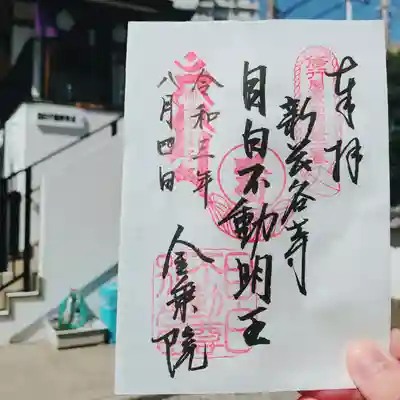 奉拝
新長谷寺
目白不動明王
令和三年
八月四日
金乗院